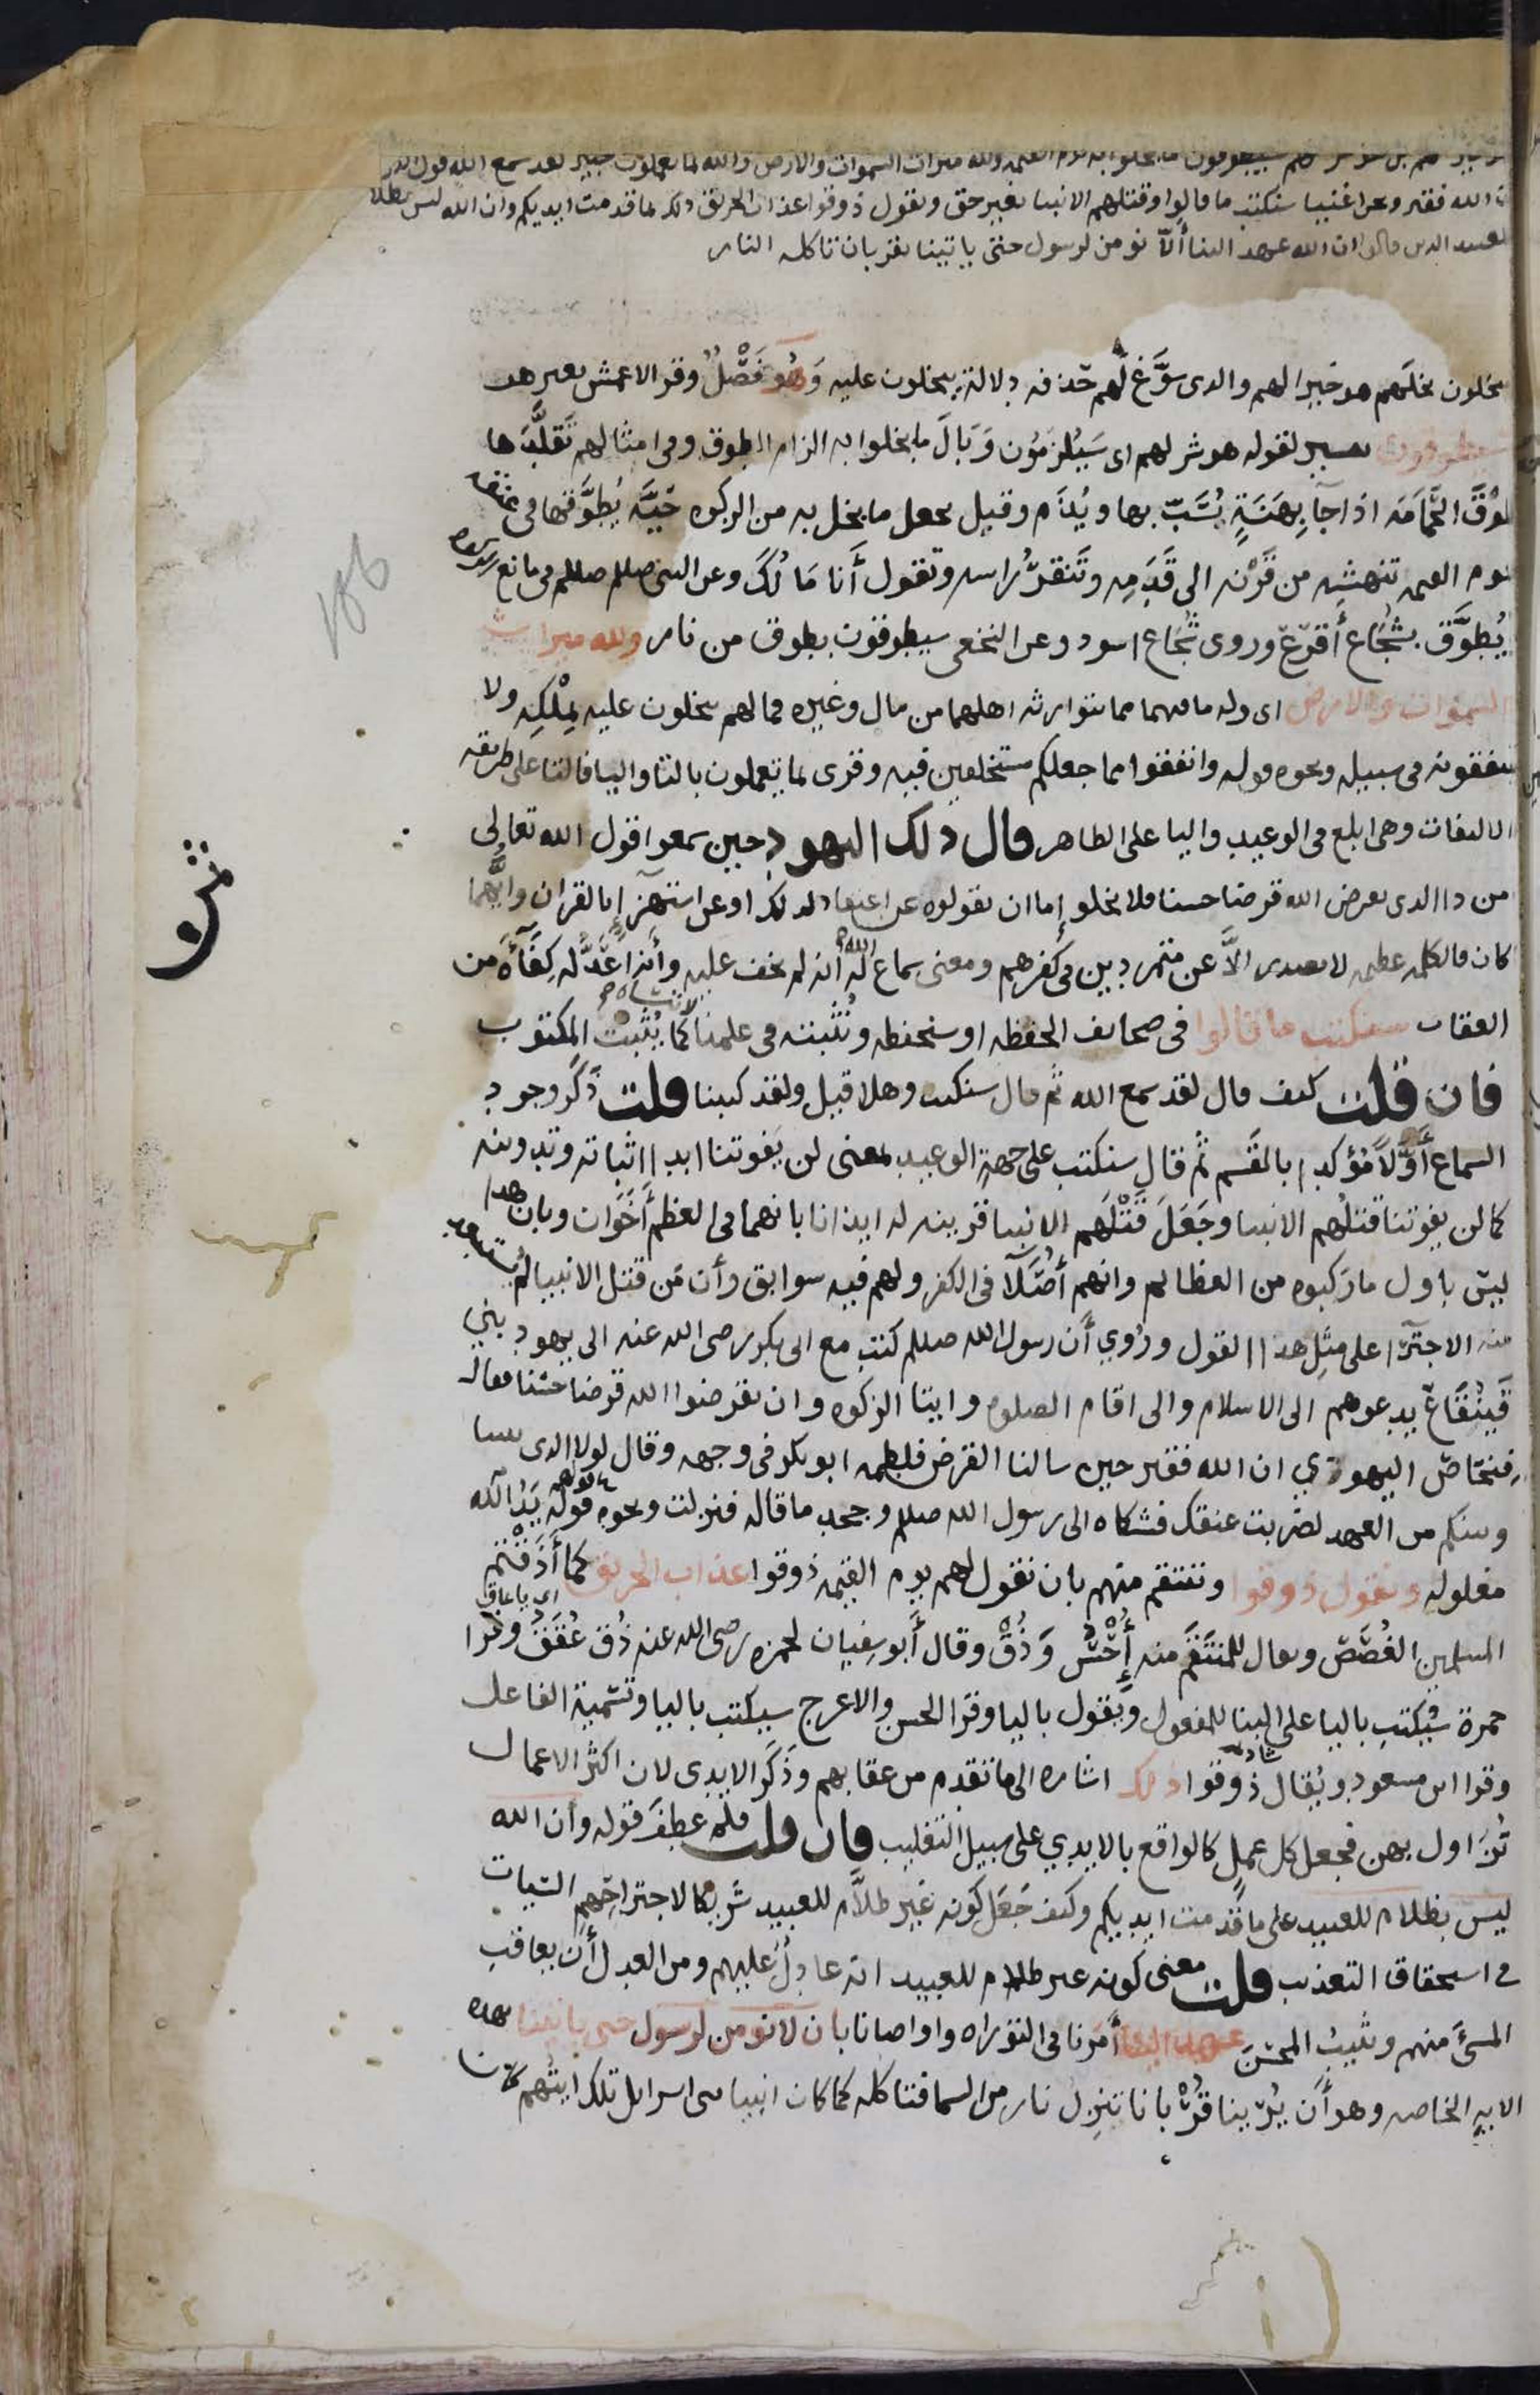 خير لهم بل هو شر لهم سيطوقون ما بخلوا به يوم القيمه ولله ميراث السموات والارض والله بما تعملون خبير لقد سمع الله قول الذين
ان الله فقير ونحن اغنيا سنكتب ما قالوا وقتلهم الانبيا بغير حق ونقول ذوقوا عذاب الحريق ذلك بما قدمت ايديكم وان الله ليس بظلام
للعبيد الدين قالوا ان الله عهد الينا ألّا نومن لرسول حتى ياتينا بقربان تاكله النار
يبخلون بخلهم هو خيرا لهم والدى سوَّغ لهم حذفه دلالة يبخلون عليه وَهُو فَصْلٌ وقر الاعمش بغير هو
سيطوقون تفسير لقوله هو شر لهم اى سَيُلْزَمُون وَبَالَ ما بخلوا به الزام الطوق وفى امثالهم تَقَلَّدَها
طوْقَ الحَمَامَه اذا جآ بِهَنَةٍ يُسَبّ بها ويُذَم وقيل يجعل ما بخل به من الزكوه حَيَّة يُطَوَّقها فى عنقه
يوم القيمه تنهشه من قَرْنه الى قَدَمِه وتَنقرُ راسه وتقول أَنا مَالُكَ وعن النبى صللم صللم فى مانع الزكوه
يُطوَّق بشُجَاع أَقرَعَ وروى شُجَاع اسود وعن النخعى سيطوقون بطوق من نار ولله ميراث
السموات والارض اى وله ما فيهما مما يتوارثه اهلهما من مال وغيره فما لهم يبخلون عليه بمِلْكِه ولا
ينفقونه فى سبيله ونحوه قوله وانفقوا مما جعلكم مستخلفين فيه وقرى بما تعملون بالتا واليا فالتا على طريقه
الالتفات وهى ابلغ فى الوعيد واليا على الظاهر قال ذلك اليهود حين سمعوا قول الله تعالى
من ذا الدى يقرض الله قرضا حسنا فلا يخلو إما ان يقولوه عن اعتقاد لذلك او عن استهزإٍ بالقران وايُّهما
كان فالكلمه عظيمه لا تصدر الاَّ عن متمردين فى كفرهم ومعنى سماع الله له انه لم يخف عليه وأنه أعَدَّ له كِفَآءَه من
العقاب سنكتب ما قالوا فى صحائف الحفظه او سنحفظه ونُثْبته فى علمنا لا ننساه كما يُثْبَتُ المكتوب
فان قلت كيف قال لقد سمع الله ثم قال سنكتب وهلا قيل ولقد كتبنا قلت ذَكَرَ وجود
السماع أَوَّلاً مُؤكدا بالقَسم ثم قال سنكتب على جهة الوعيد بمعنى لن يَفوتنا ابدا اثباته وتدوينه
كما لن يفوتنا قتلُهم الانبيا وجَعَلَ قَتْلَهم الانبيا قرينه له ايذانا بانهما فى العظم أَخَوَان وبان هذا
ليس باول ما رَكبوه من العظائم وانهم أُصَلَآ فى الكفر ولهم فيه سوابق وأن مَن قتل الانبيا لم يُستبعد
منه الاجترا على مِثْل هذا القول ورُوي أن رسول الله صللم كتب مع ابى بكر رضى الله عنه الى يهود بني
قَينُقَاعَ يدعوهم الى الاسلام والى اقام الصلوه وايتا الزكوه وان يقرضوا الله قرضا حسنا فقال
فِنحَاصُ اليهودي ان الله فقير حين سالنا القرض فلطمه ابو بكر فى وجهه وقال لولا الدى بيننا
وبينكم من العهد لضربت عنقك فشكاه الى رسول الله صللم وجحد ما قاله فنزلت ونحوه قوله يَدُ الله
مغلوله ونقول ذوقوا وننتقم منهم بان نقول لهم يوم القيمه ذوقوا عذاب الحريق كما أَذَقْتُم
المسلمين الغُصَصَ ويقال للمنتَقَم منه أَحْسِ وَذُقْ وقال أَبو سفيان لحمزه رضى الله عنه ذُق عُقَقُ اى يا عاق وقرا
حمزة سَيُكتب باليا على البنا للمفعول ويَقول باليا وقرا الحسن والاعرج سيكتب باليا وتسمية الفاعل
وقرا ابن مسعود ويُقال ذوقوا ذلك اشاره الى ما تقدم من عقابهم وذَكَر الايدى لان اكثر الاعمال
تُزَاول بهن فجعل كل عمل كالواقع بالايدي على سبيل التغليب فان قلت فلم عطف قوله وأن الله
ليس بظلام للعبيد على ما قَدمت ايديكم وكيف جَعَل كونه غير ظلاَّم للعبيد شريكا لاجتراحِهِم السيات
فى استحقاق التعذيب قلت معنى كونه غير ظلام للعبيد انه عادلٌ عليهم ومن العدل أَن يعاقب
المسئَ منهم ويثيبُ المحسنَ عهد الينا أمَرنا فى التوراه واوصانا بان لا نومن لرسول حتى ياتينا بهذه
الايه الخاصه وهو أَن يُرِينا قُرْبانا تنزِل نار من السما فتاكله كما كان انبيا بنى اسرايل تلك ايتُهم كان
ثزو
186